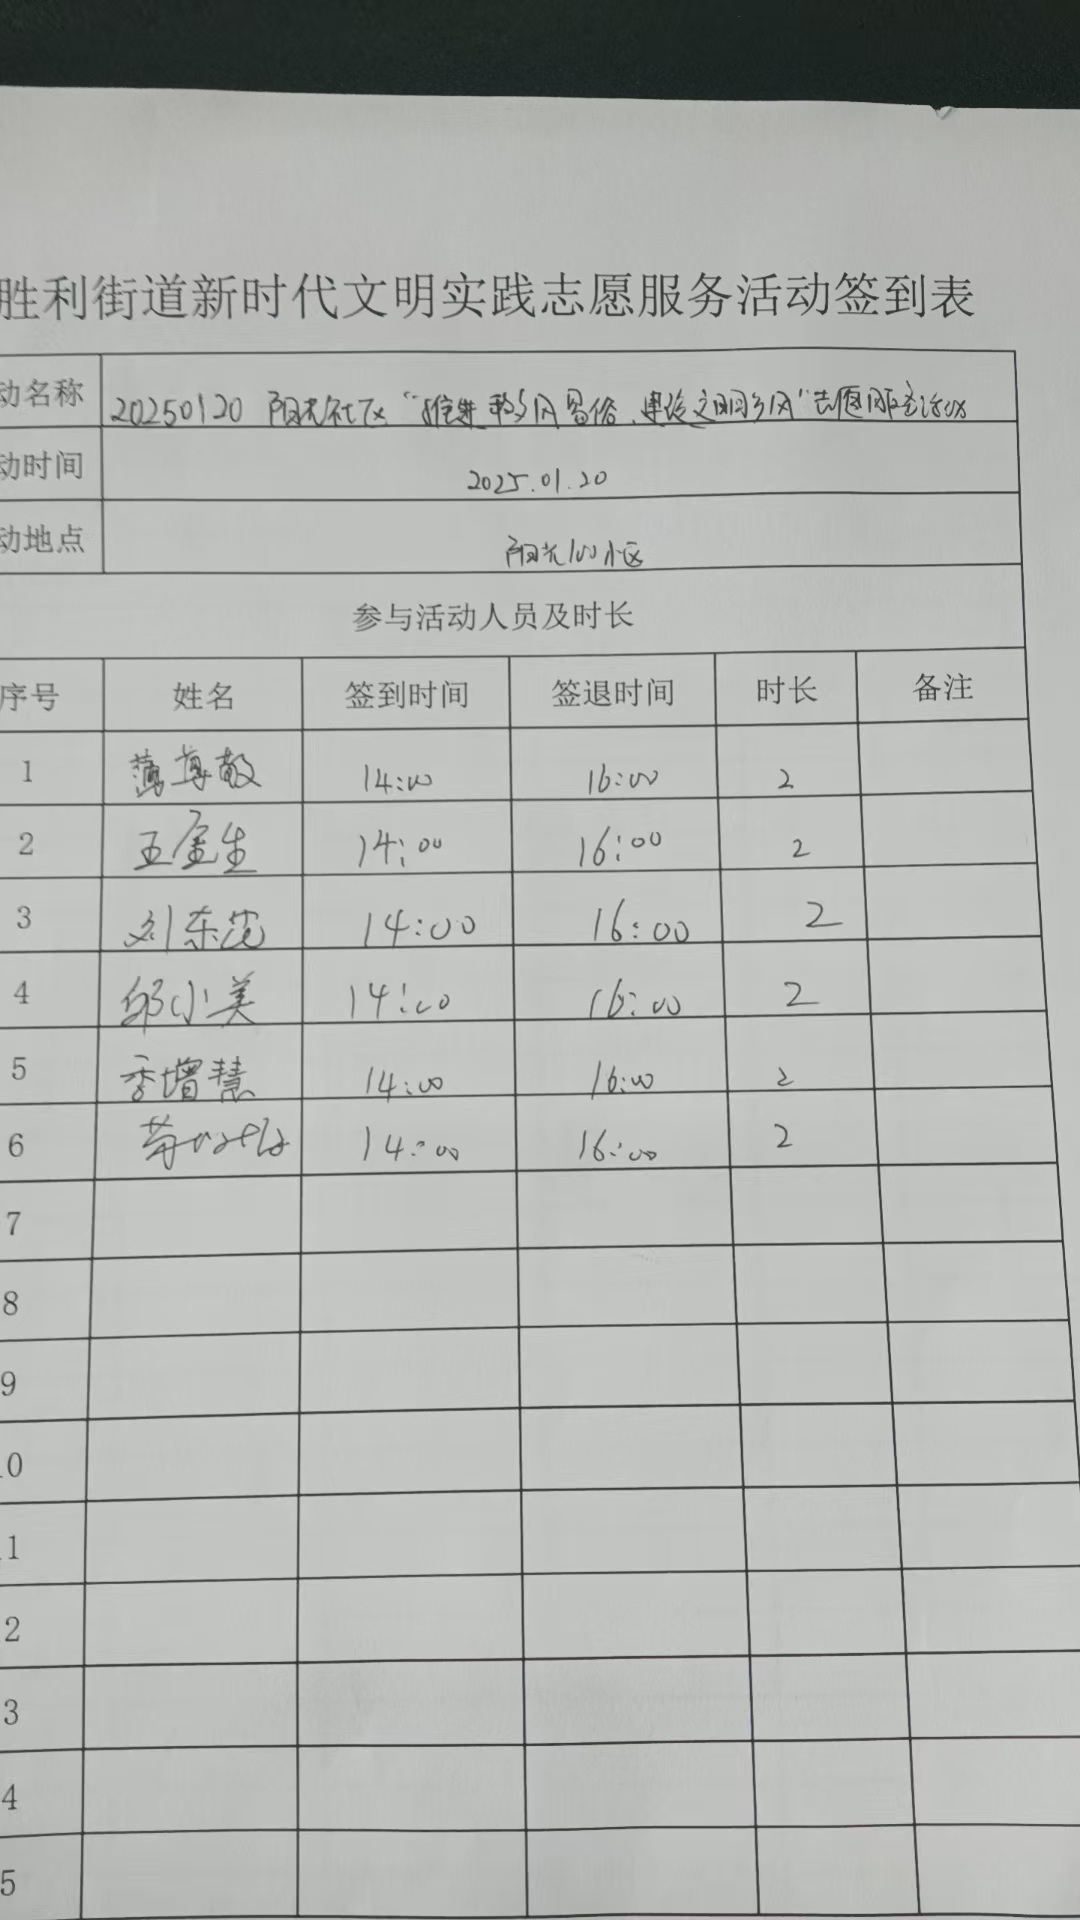 胜利街道新时代文明实践志愿服务活动签到表
动名称 20250120 阳光社区“推进移风易俗、建设文明乡风”志愿服务活动
动时间 2025.01.20
动地点 阳光100小区
参与活动人员及时长
序号 姓名 签到时间 签退时间 时长 备注
1 14:00 16:00 2
2 王金生 14:00 16:00 2
3 刘东 14:00 16:00 2
4 邱小美 14:00 16:00 2
5 季增慧 14:00 16:00 2
6 14:00 16:00 2
7
8
9
.0
.1
2
3
4
5